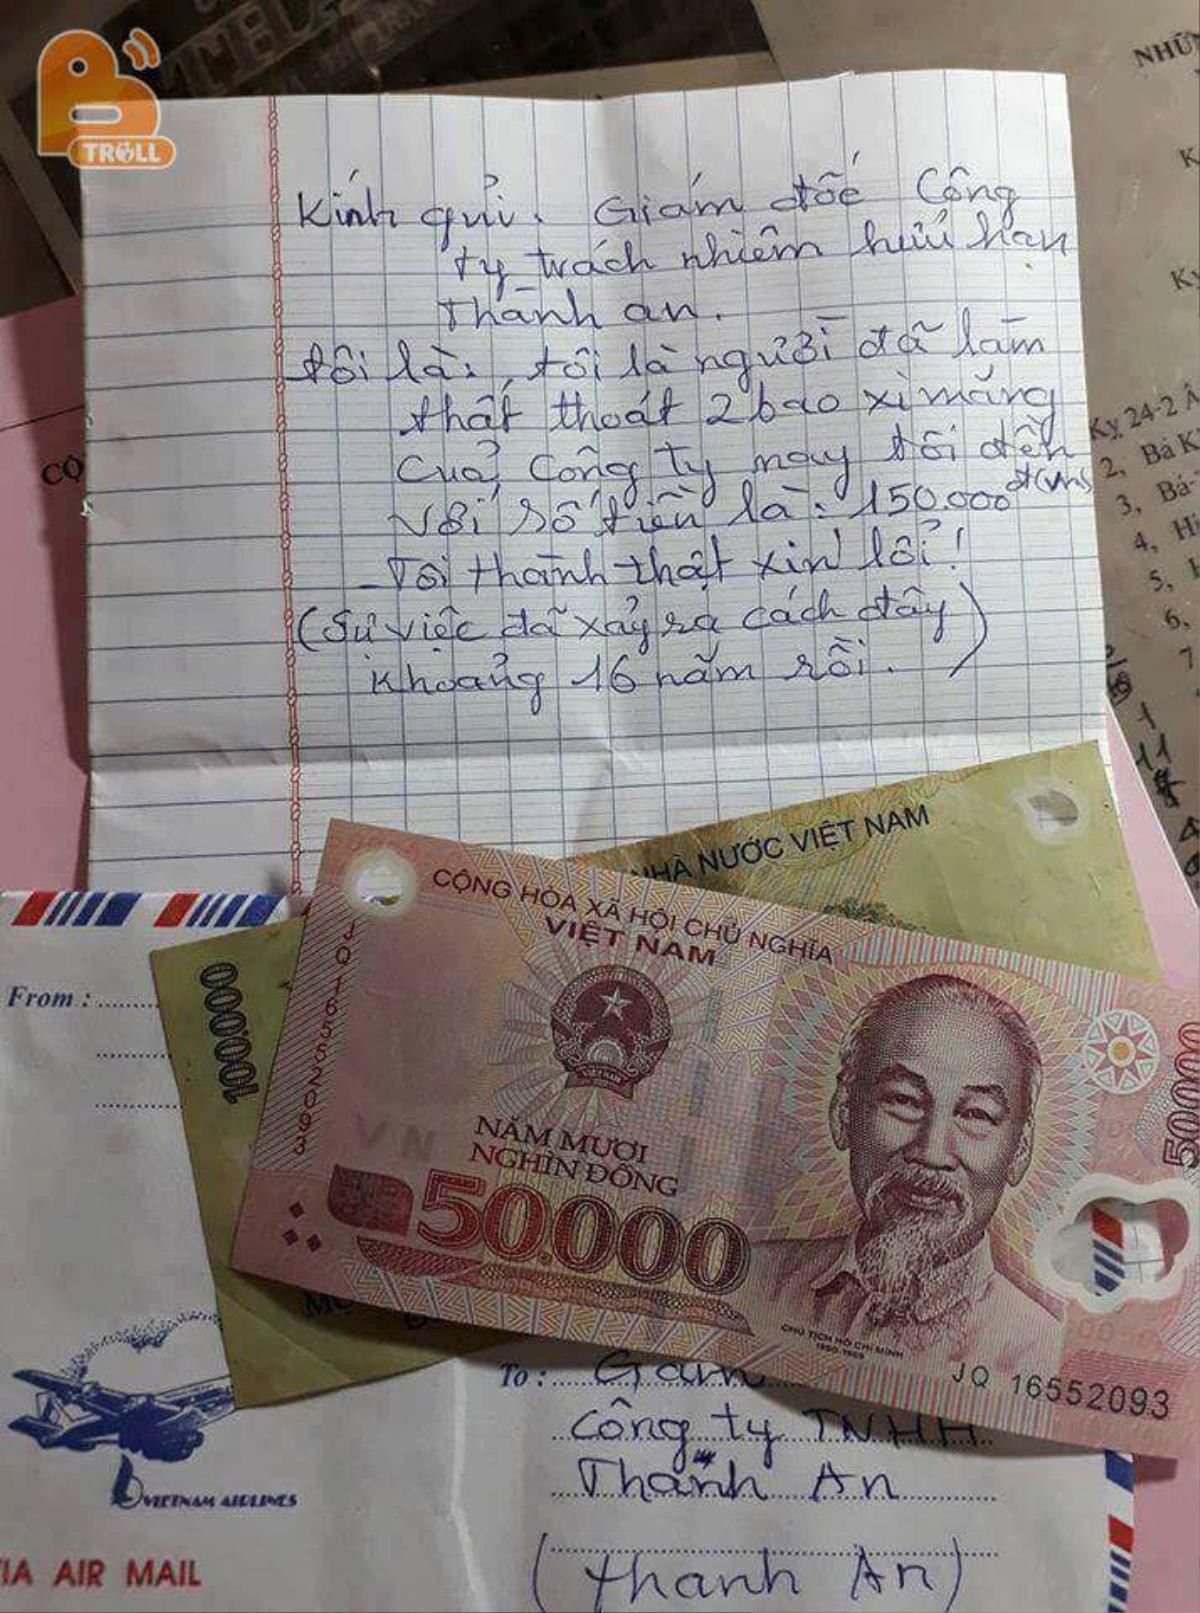 TROLL
NHỮN
Kính gửi: Giám đốc Công
ty trách nhiệm hữu hạn
Thành an.
tôi là: tôi là người đã làm
thất thoát 2 bao xi măng
Của Công ty nay tôi đền
với số tiền là: 150.000 đ(vnđ)
- Tôi thành thật xin lỗi!
(Sự việc đã xảy ra cách đây
khoảng 16 năm rồi.)
CỘ
Kỵ 24-2 Â
2, Bá K
3, Bá
4, H
5,
6,
7
NHÀ NƯỚC VIỆT NAM
100.000
CỘNG HÒA XÃ HỘI CHỦ NGHĨA
VIỆT NAM
JQ16552093
VN
NĂM MƯƠI
NGHÌN ĐỒNG
50.000
50.000
CHỦ TỊCH HỒ CHÍ MINH
1890-1969
JQ 16552093
From :
To :
Công ty TNHH
Thành An
(Thanh An)
VIETNAM AIRLINES
VIA AIR MAIL